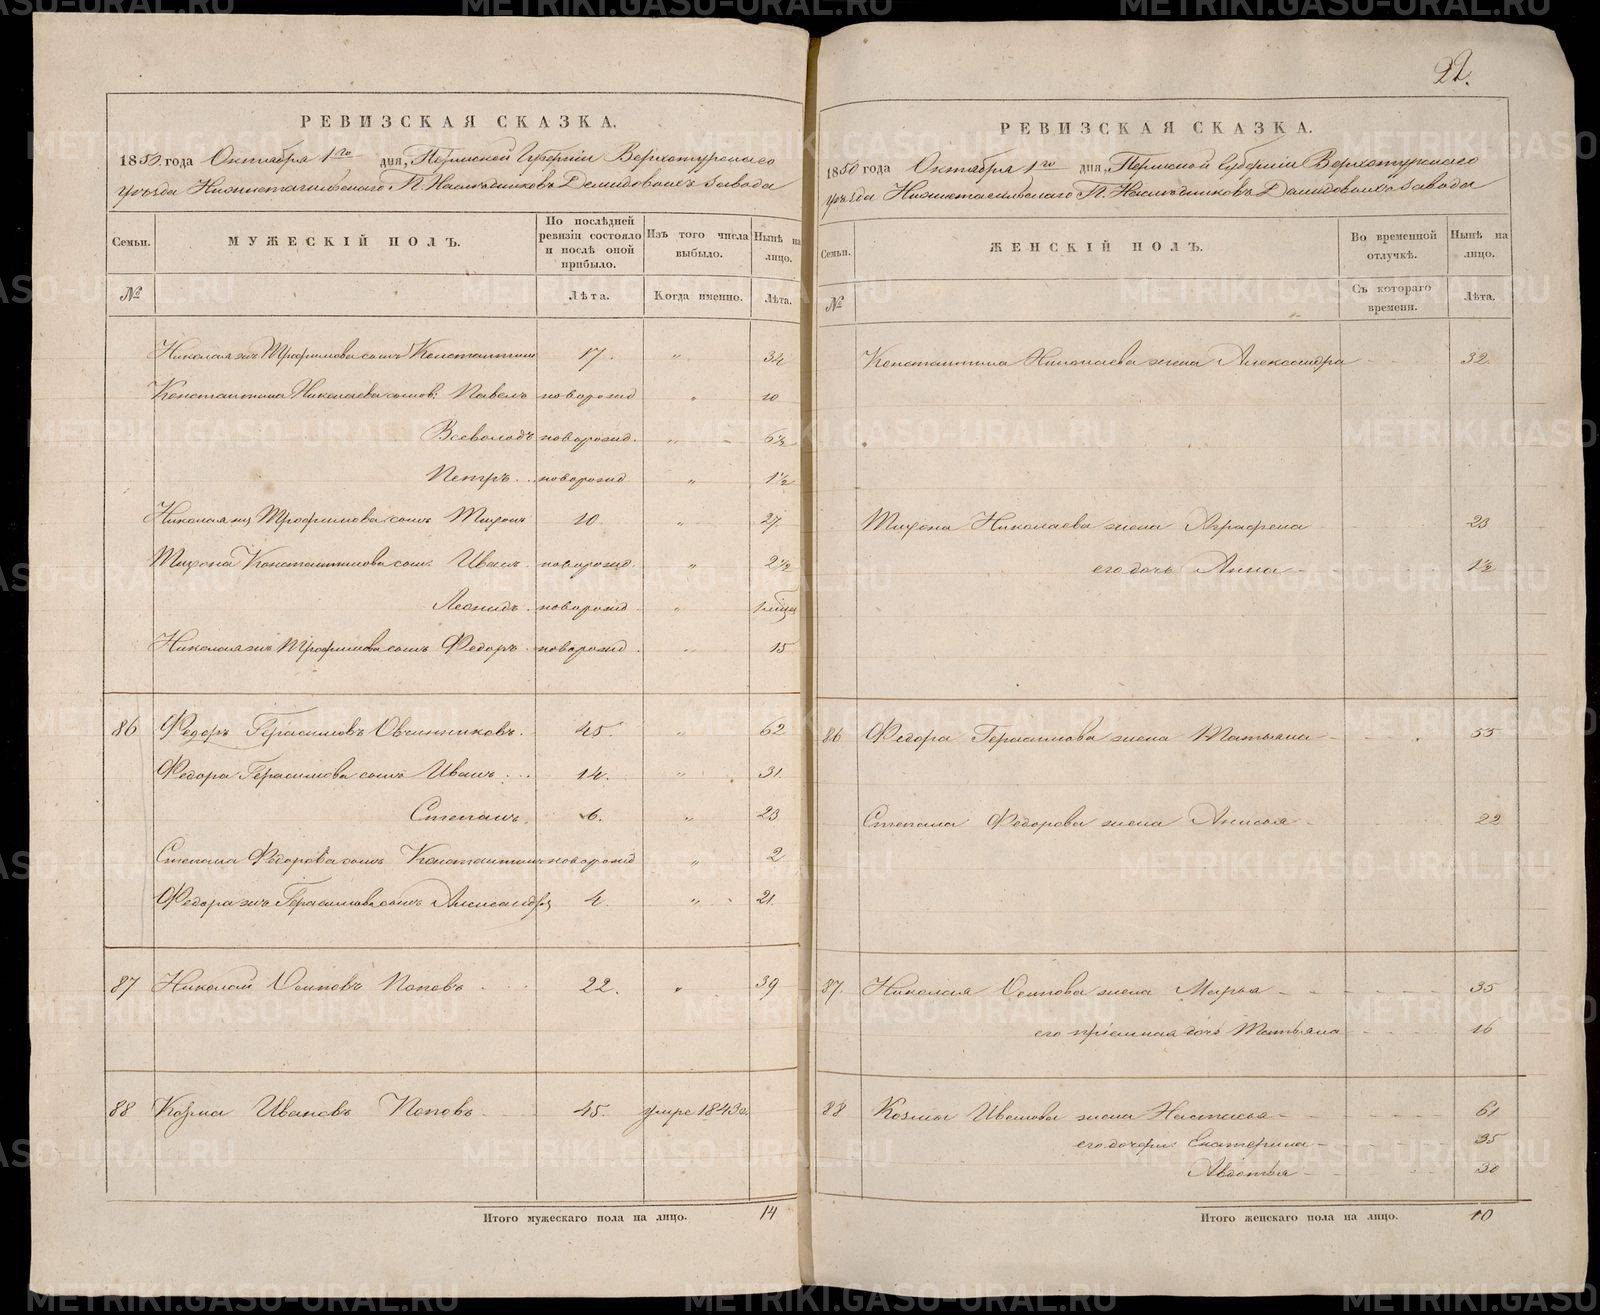 22.
РЕВИЗСКАЯ СКАЗКА.
1850 года Октября 1го дня, Пермской Губернии Верхотурскаго
уѣзда Нижнетагильскаго П. Наслѣдниковъ Демидовыхъ завода
Семьи. МУЖЕСКІЙ ПОЛЪ. По послѣдней ревизіи состояло и послѣ оной прибыло. Изъ того числа выбыло. Нынѣ на лицо.
№ Лѣта. Когда именно. Лѣта.
Николая жъ Трофимова сынъ Константинъ 17. „ 34
Константина Николаева сынов: Павелъ новорожд „ 10
Всеволодъ новорожд. „ 6½
Петръ новорожд „ 1½
Николая жъ Трофимова сынъ Тихонъ 10 „ 27
Тихона Константинова сын. Иванъ новорожд. „ 2½
Леонидъ новорожд „
Николая жъ Трофимова сынъ Федоръ новорожд „ 15
86 Федоръ Герасимовъ Овчинниковъ. 45. „ 62
Федора Герасимова сынъ Иванъ 14. „ 31
Степанъ 6. „ 23
Степана Федорова сынъ Константинъ новорожд „ 2
Федора жъ Герасимова сынъ Александръ 4. „ 21.
87 Николай Осиповъ Поповъ 22. „ 39
88 Козма Ивановъ Поповъ 45. умре 1843го.
Итого мужескаго пола на лицо. 14
РЕВИЗСКАЯ СКАЗКА.
1850 года Октября 1го дня Пермской Губерніи Верхотурскаго
уѣзда Нижнетагильскаго П. Наслѣдниковъ Демидовыхъ завода
Семьи. ЖЕНСКІЙ ПОЛЪ. Во временной отлучкѣ. Нынѣ на лицо.
№ Съ котораго времени. Лѣта.
Константина Николаева жена Александра 32
Тихона Николаева жена Аграфена 23
его дочь Анна 1½
86 Федора Герасимова жена Татьяна 55
Степана Федорова жена Анисья 22
87. Николая Осипова жена Марья 35
его пріемная дочь Татьяна 16
88 Козмы Иванова жена Настасья 61
его дочери: Екатерина 35
Авдотья 30
Итого женскаго пола на лицо. 10
METRIKI.GASO-URAL.RU